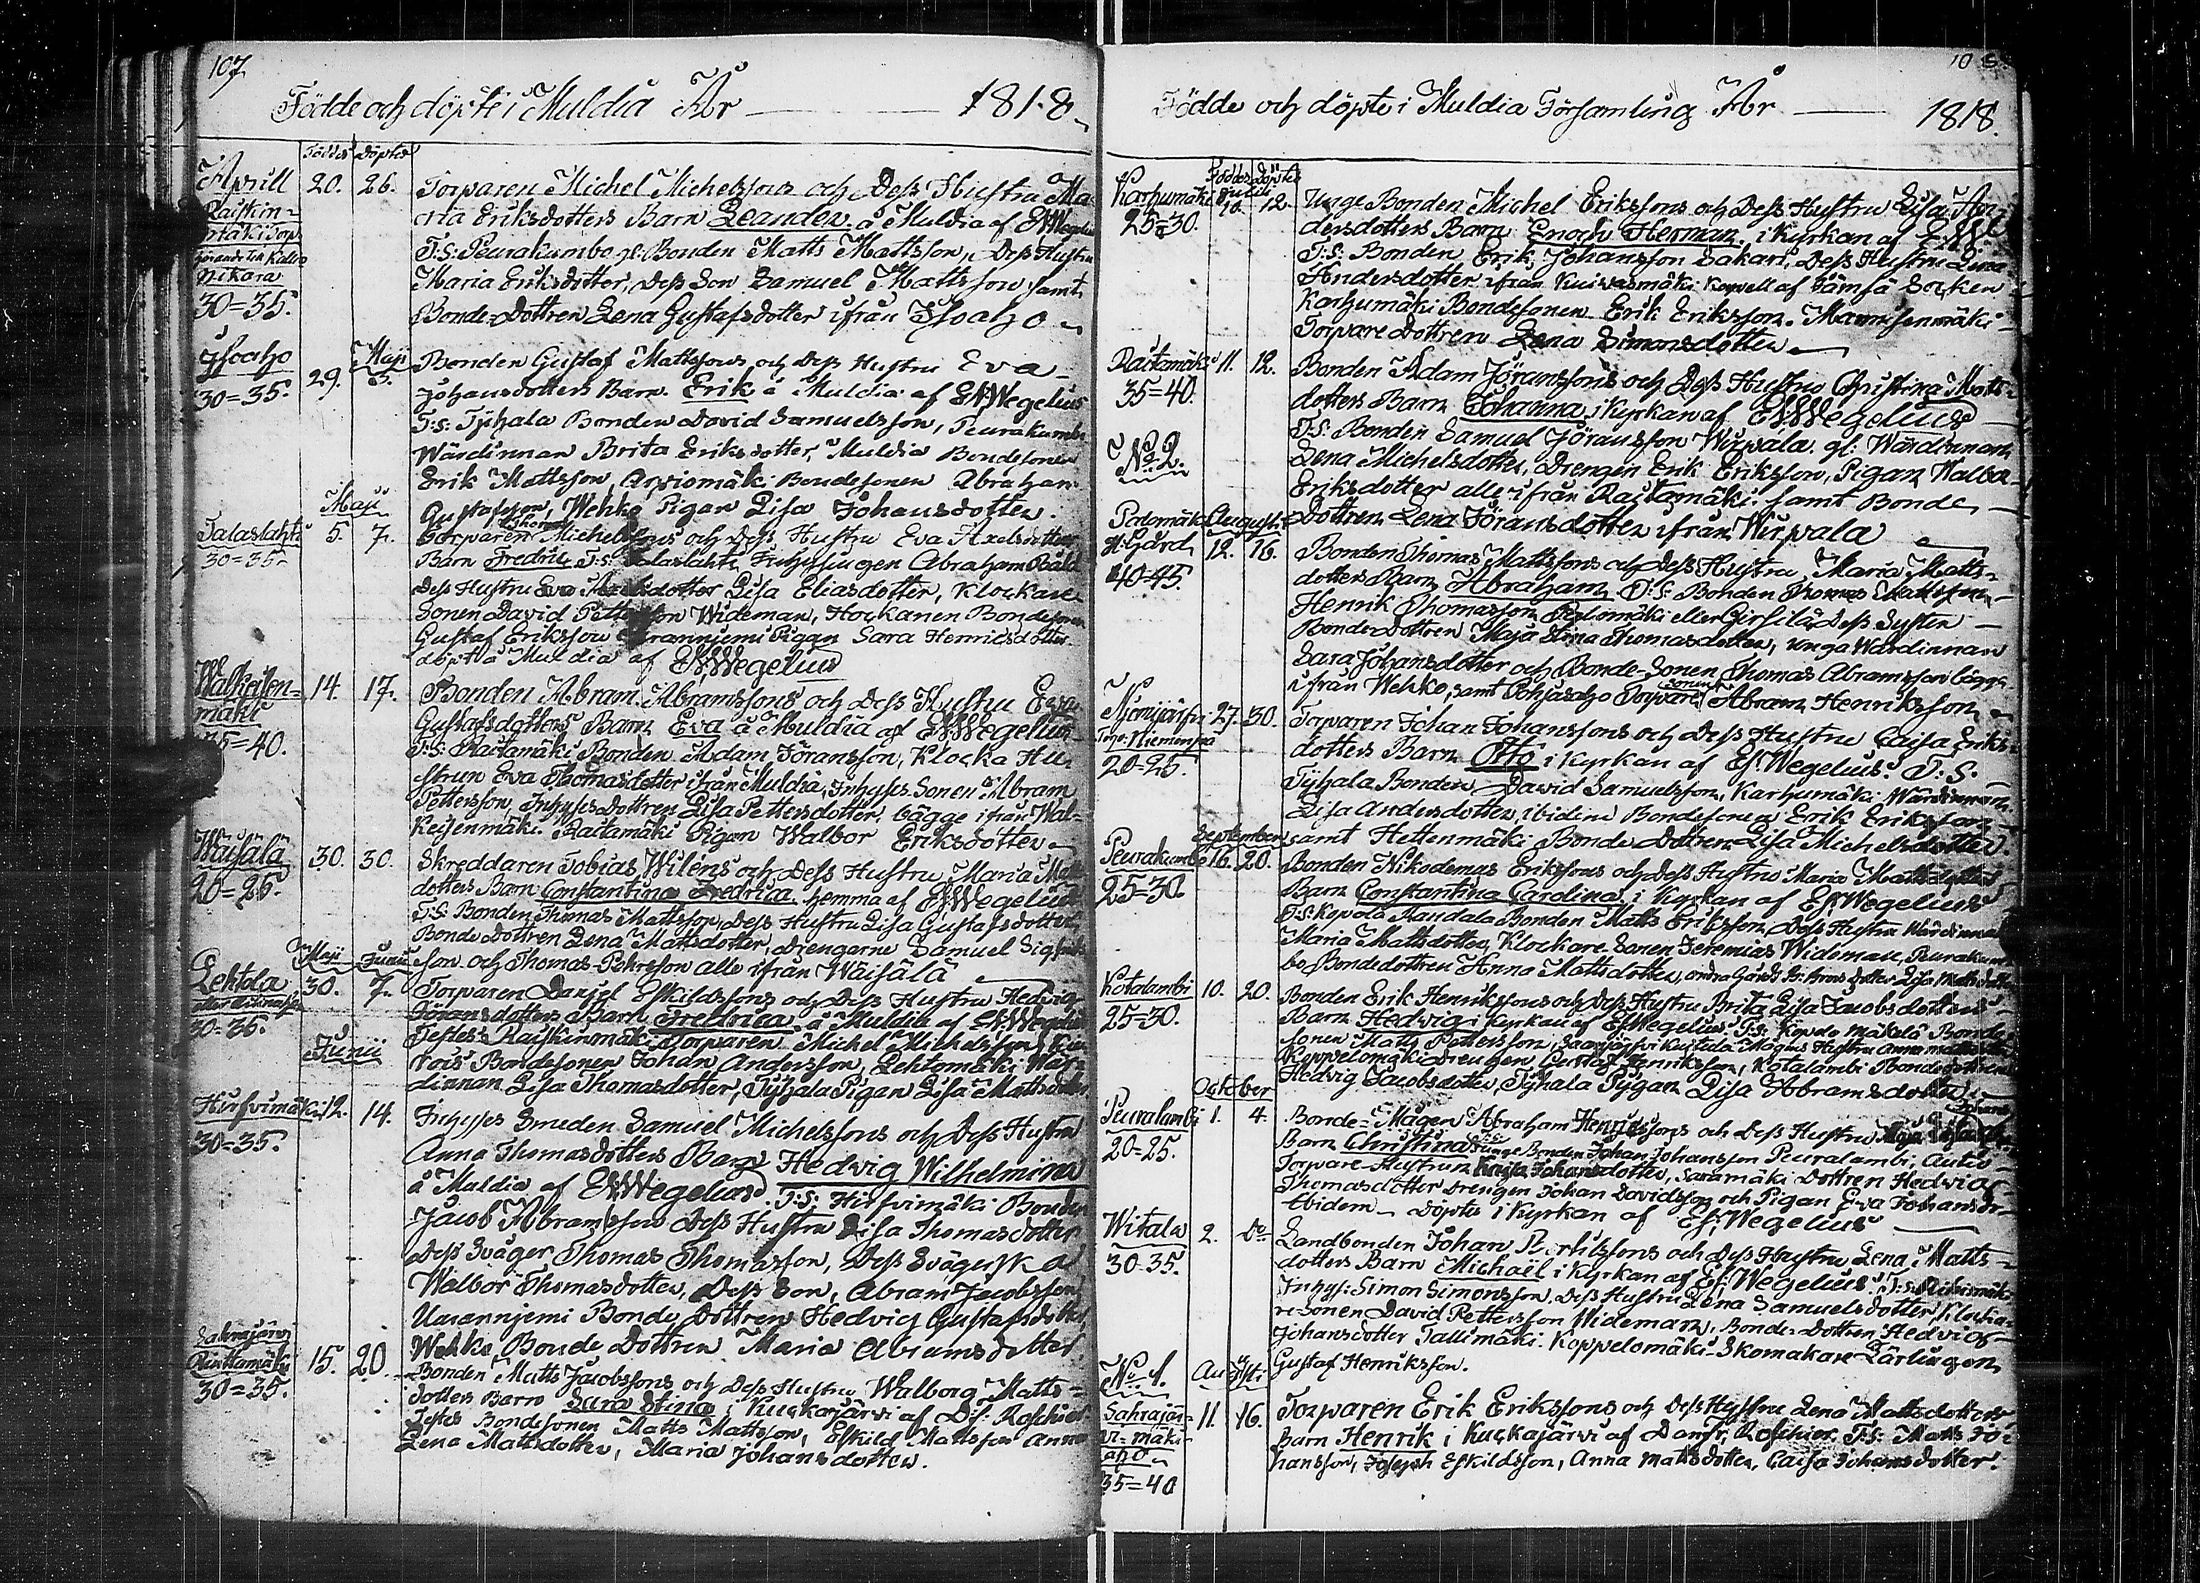 107
Födde och döpte i Muldia År 1818.
Föddes Döptes
Aprill 20. 26. Torparen Michel Michelssons och Dess Hustru Ma-
ria Eriksdotters Barn Leander å Muldia af EWWegelius
T:S: Peurakumbo gl: Bonden Matts Mattsson, Dess Hustru
Nikara Maria Eriksdotter, Dess Son Samuel Mattsson samt
30=35. Bonde-Dottren Lena Gustafsdotter ifrån Isoaho
Isoaho 29. Maji 3. Bonden Gustaf Mattssons och Dess Hustru Eva
30=35. Johansdotters Barn Erik å Muldia af EWWegelius
T:S: Tyhala Bonden David Samuelsson, Peurakumbo
Wärdinnan Brita Eriksdotter, Muldia Bondesonen
Erik Mattsson, Arviomäki Bondesonen Abraham
Maji Gustafsson, Wehko Pigan Lisa Johansdotter.
Talaslahti 5. 7. Torparen Michelssons och Dess Hustru Eva Axelsdotters
30=35. Barn Fredric T:S: Talaslahti Inhyssingen Abraham
Dess Hustru Eva Lisa Eliasdotter, Klockare
Sonen David Pettersson Wideman, Hockanen Bondesonen
Gustaf Eriksson Pigan Sara Henricsdotter
döpt å Muldia af EWWegelius
Walkeisen=
mäki 14. 17. Bonden Abram Abramssons och Dess Hustru Eva
35=40. Gustafsdotters Barn Eva å Muldia af EWWegelius
T:S: Raitamäki Bonden Adam Jöransson, Klocka Hu-
strun Eva Thomasdotter ifrån Muldia, Inhysses Sonen Abram
Pettersson, Inhysses Dottren Lisa Pettersdotter, bägge ifrån Wal-
keisenmäki. Raitamäki Pigan Walbor Eriksdotter
Wäisälä 30. 30. Skreddaren Tobias Wilens och Dess Hustru Maria Matts
20=25. dotters Barn Constantina Fredrica hemma af EWWegelius
T:S: Bonden Thomas Mattsson, Dess Hustru Lisa Gustafsdotter
Bonde Dottren Lena Mattsdotter, Drengarne Samuel
Maji Junii son och Thomas alle ifrån Wäisälä
Lehtola 30. 7. Torparen Daniel Eskildssons och Dess Hustru Hedvig
30=35. Jöransdotters Barn Fredrica å Muldia af EWWegelius
Testes: Raiskinmäki Torparen Michel Michelsson,
Junii Bondesonen Johan Andersson, Lehtomäki Wär-
dinnan Lisa Thomasdotter, Tyhala Pigan Lisa Mattsdotter
Hirsvimäki 12. 14. Inhysses Smeden Samuel Michelssons och Dess Hustru
30=35. Anna Thomasdotters Barn Hedvig Wilhelmina
å Muldia af EWWegelius. T:S: Hirsvimäki Bonden
Jacob Abramsson Dess Hustru Lisa Thomasdotter
Dess Svåger Thomas Thomasson, Dess Svägerska
Walbor Thomasdotter, Dess Son, Abram Jacobsson,
Uurannjemi Bonde Dottren Hedvig Gustafsdotter,
Wehko Bonde Dottren Maria Abramsdotter
Sahrajärvi 15. 20. Bonden Matts Jacobssons och Dess Hustru Walborg Matts=
30=35. dotters Barn Sara Stina i Kuckajärvi af
Testes Bondesonen Matts Mattsson, Eskild Mattsson Anna
Lena Mattsdotter, Maria Johansdotter.
Födde och döpte i Muldia Församling År 1818.
Föddes Döptes
Karhumäki Julii 10. 12. Unge Bonden Michel Erikssons och Dess Hustru Lisa An-
25=30. dersdotters Barn Enoch Herman i Kyrkan af
T:S: Bonden Erik Johansson Sakari, Dess Hustru Lena
Andersdotter ifrån Kuivasmäki Kapell af Jämsä Socken
Karhumäki Bondesonen Erik Eriksson. Mannisenmäki
Torpare Dottren Lena Simonsdotter
Raitamäki 11. 12. Bonden Adam Jöranssons och Dess Hustru Christina Matts-
35=40. dotters Barn Johanna i Kyrkan af EWWegelius
T:S. Bonden Samuel Jöransson Wirvala. gl: Wärdinnan
No 2. Lena Michelsdotter, Drengen Erik Eriksson, Pigan Walbor
Eriksdotter alle ifrån Raitamäki samt Bonde
Augusti Dottren Lena Jöransdotter ifrån Wirvala
H.Gård 12. 16. Bonden Thomas Mattssons och Dess Hustru Maria Matts=
40=45. dotters Barn Abraham T:S: Bonden Thomas Mattsson,
Henrik Thomasson, Dess Syster
Bonde Dottren Maja Stina Thomasdotter, unga Wärdinnan
Sara Johansdotter och Bonde-Sonen Thomas Abramsson bägge
ifrån Wehko, samt Pohjasaho Torpare sonen Abram Henriksson
27. 30. Torparen Johan Johanssons och Dess Hustru Caisa Eriks-
20=25. dotters Barn Otto i Kyrkan af Ef. Wegelius. T:S.
Tyhala Bonden David Samuelsson, Karhumäki Wärdinnan
Lisa Andersdotter, ibidem Bondesonen Erik Eriksson
September samt Hettenmäki Bonde Dottren Lisa Michelsdotter.
Peurakumbo 16. 20. Bonden Nikodemus Erikssons och Dess Hustru Maria Mattsdotters
25=30. Barn Constantina Carolina i Kyrkan af Ef. Wegelius
T:S: Kopola Bonden Matts Eriksson, Dess Hustru Wärdinnan
Maria Mattsdotter, Klockare Sonen Jeremias Wideman, Peurakum-
bo Bondedottren Anna Mattsdotter,
Kotalambi 10. 20. Bonden Erik Henrikssons och Dess Hustru Brita Lisa Jacobsdotters
25=30. Barn Hedvig i Kyrkan af Ef. Wegelius T:S: Mäkelä Bonde-
sonen Matts Pettersson,
Koppelomäki Drengen Gustaf Henriksson, Kotalambi Bondedottren
Hedvig Jacobsdotter, Tyhala Pigan Lisa Abramsdotter
October
Peuralambi 1. 4. Bonde-Mågen Abraham Henrikssons och Dess Hustru
20=25. Barn Christina Bonden Johan Johansson Peuralambi,
Torpare-Hustrun Johansdotter, Saramäki Dottren Hedvig
Thomasdotter Drengen Johan Davidsson och Pigan Eva Johansdr-
Ibidem – Döpte i Kyrkan af Ef. Wegelius
Witala 2. Do Landbonden Johan Bertilssons och Dess Hustru Lena Matts=
30=35. dotters Barn Michaël i Kyrkan af Ef. Wegelius.
Inhys: Simon Simonsson. Dess Hustru Lena Samuelsdotter, Klocka-
re-Sonen David Pettersson Wideman, Bonde-Dottren Hedvig
Johansdotter Tallimäki. Koppelomäki Skomakare-Lärlingen
Gustaf Henriksson.
No 1. Augusti
Sahrajär=
vi-mäki
aho 11. 16. Torparen Erik Erikssons och Dess Hustru Lena Mattsdotters
35=40 Barn Henrik i Kuckajärvi af T:S: Matts Jo-
hansson, Joseph Eskildsson, Anna Mattsdotter, Caisa Johansdotter.